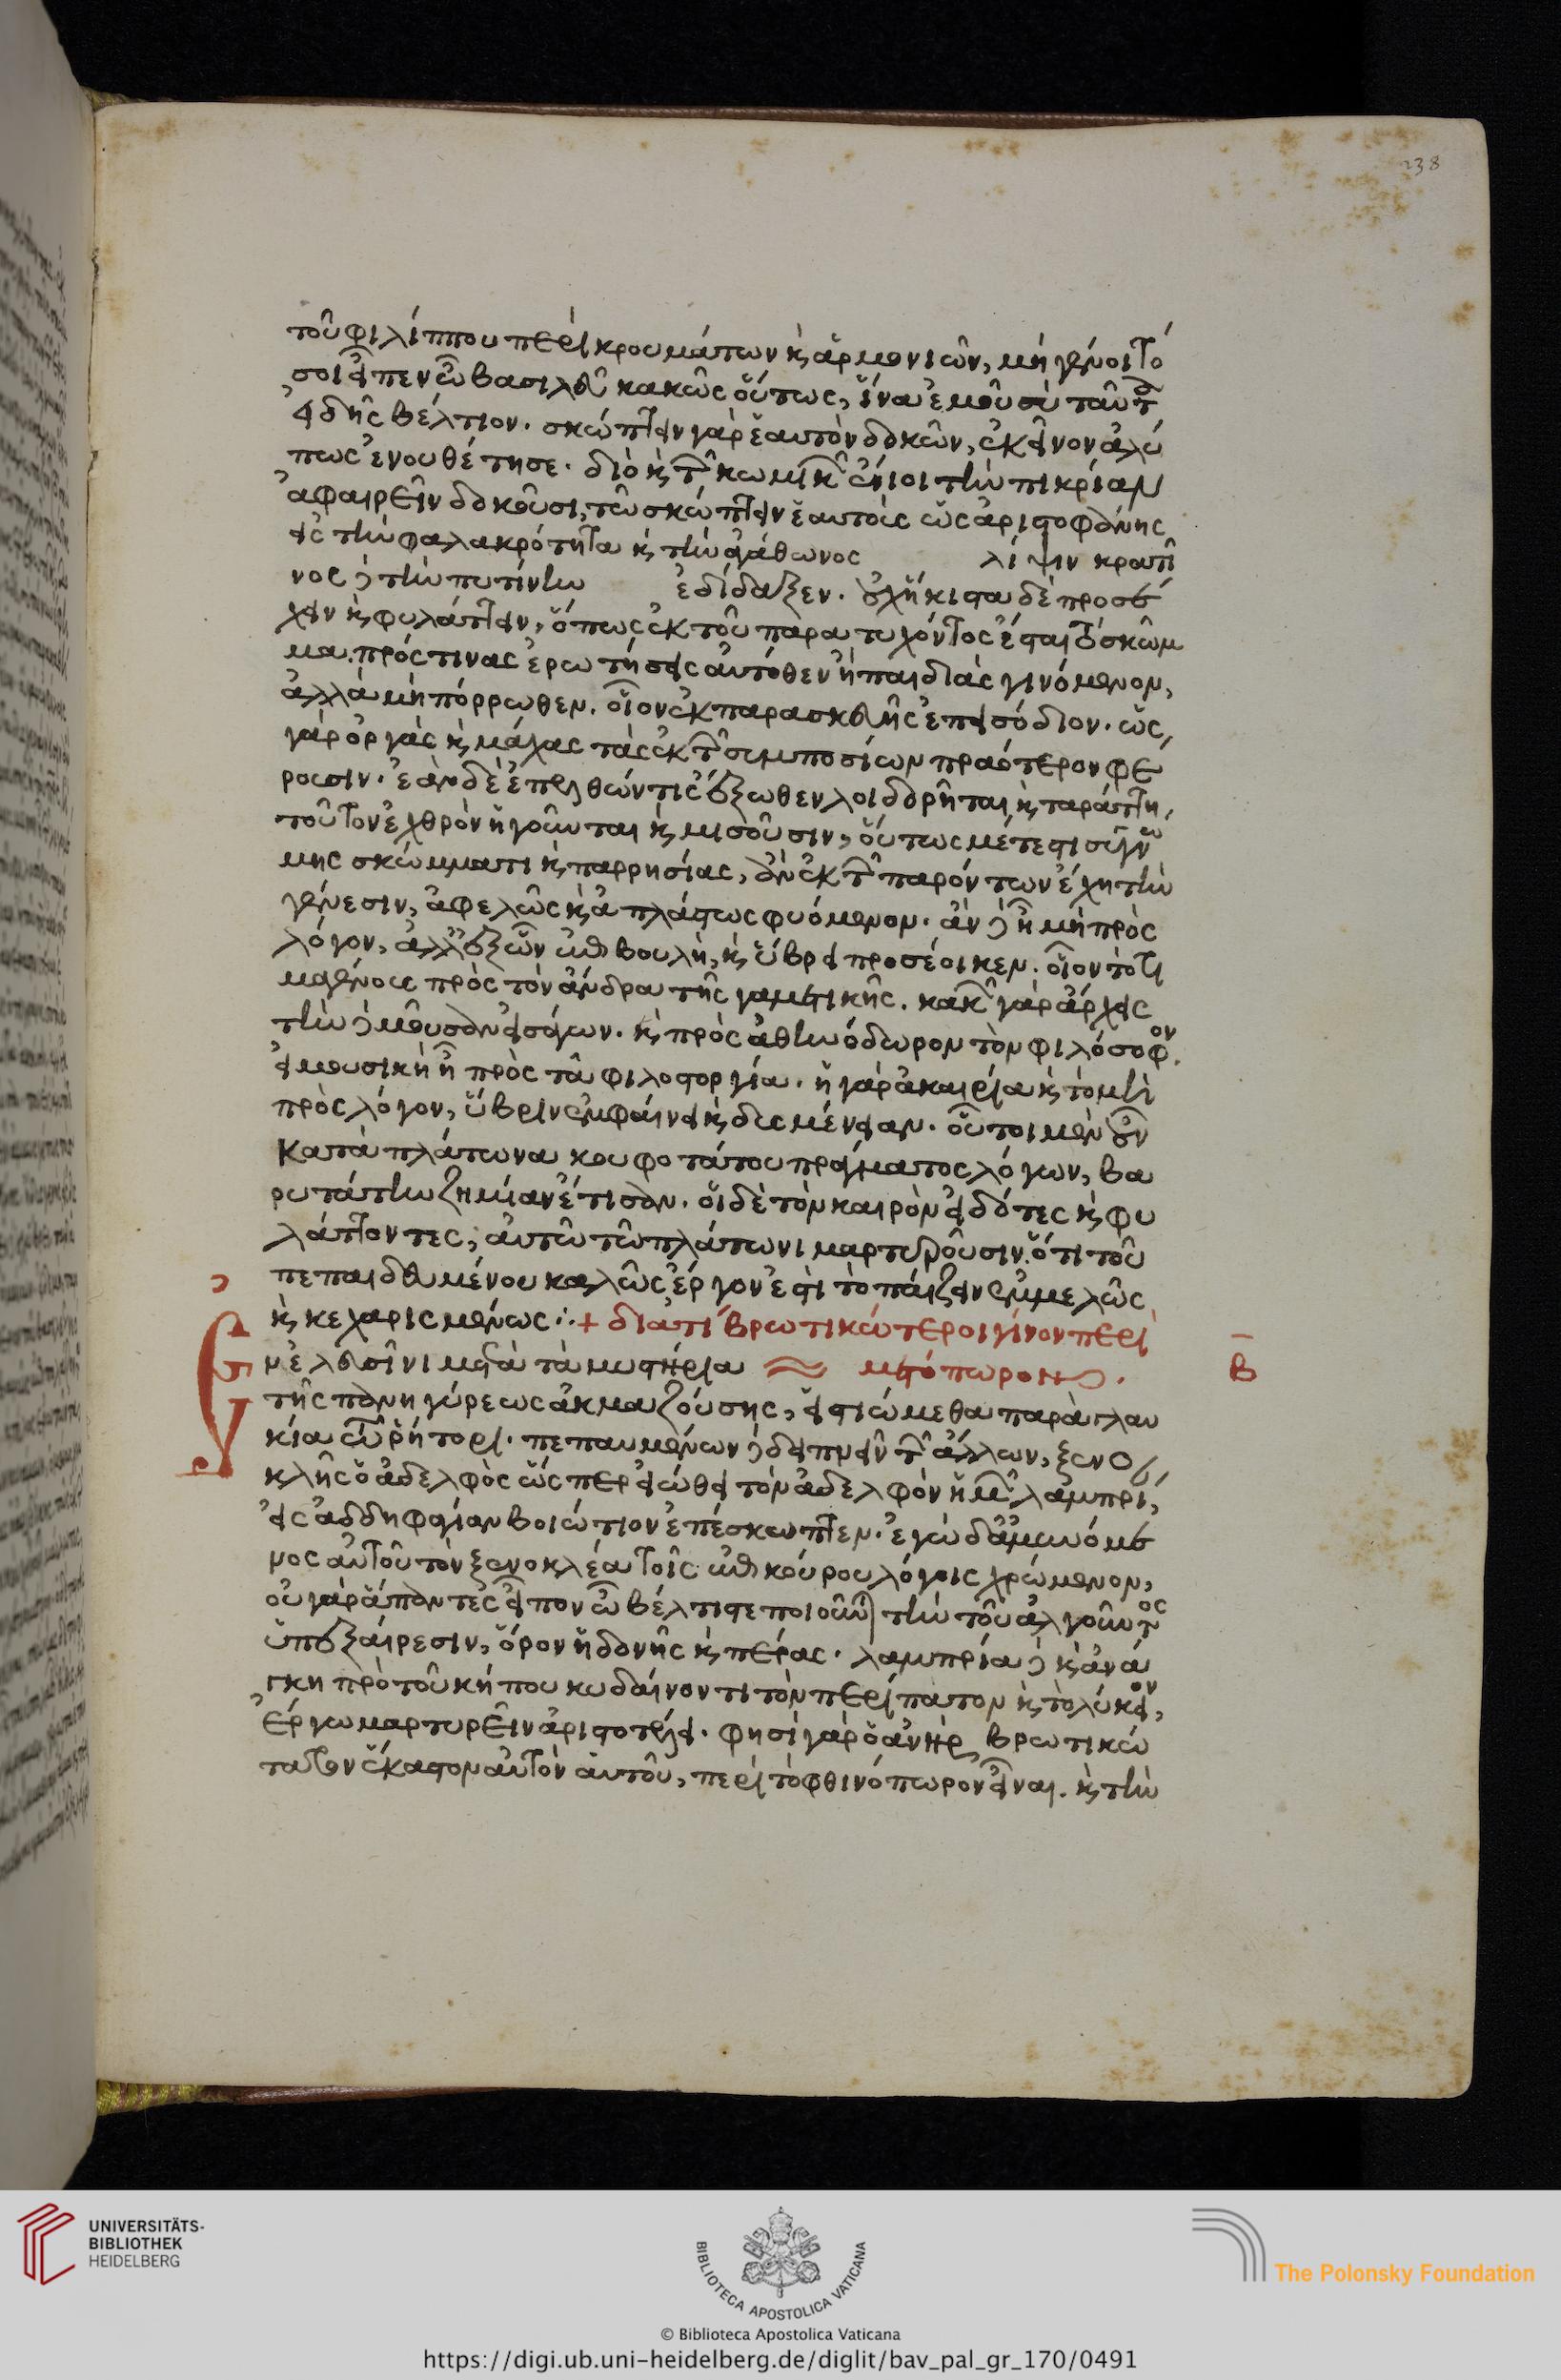 238
τοῦ φιλίππου περὶ κρουμάτων κ̀ ἁρμονιῶν, μὴ γένοιτό
σοι εἶπεν ὦ βασιλεῦ κακῶς οὕτως, ἵνα ἐμοῦ σὺ ταῦτ
εἰδῇς βέλτιον. σκώπτειν γὰρ ἑαυτὸν δοκῶν, ἐκεῖνον ἀλύ
πως ἐνουθέτησε. διὸ κ̀ τῶν κωμικῶν ἔνιοι τὴν πικρίαν
ἀφαιρεῖν δοκοῦσι, τῶ σκώπτειν ἑαυτοὺς ὡς ἀριστοφάνης
εἰς τὴν φαλακρότητα κ̀ τὴν ἀγάθωνος λίψιν κρατῖ
νος δὲ τὴν πυτίνην ἐδίδαξεν. οὐχ ἥκιστα δὲ προσέ
χειν κ̀ φυλάττειν, ὅπως ἐκ τοῦ παρατυχόντος ἔσται τὸ σκῶμ
μα. πρός τινας ἐρωτήσεις αὐτόθεν ἢ παιδιὰς γινόμενον,
ἀλλὰ μὴ πόρρωθεν. οἷον ἐκ παρασκευῆς ἐπεισόδιον. ὡς
γὰρ ὀργὰς κ̀ μάχας τὰς ἐκ τῶν συμποσίων πραότερον φέ
ρουσιν. ἐὰν δὲ ἐπελθών τις ἔξωθεν λοιδορῆται κ̀ ταράττη,
τοῦτον ἐχθρὸν ἡγοῦνται κ̀ μισοῦσιν, οὕτως μέτεστι συγγνώ
μης σκώμματι κ̀ παρρησίας, ἂν ἐκ τῶν παρόντων ἔχη τὴν
γένεσιν, ἀφελῶς κ̀ ἀπλάστως φυόμενον. ἂν δὲ ἦ μὴ πρὸς
λόγον, ἀλλ' ἔξωθεν ἐπιβουλῆ, κ̀ ὕβρει προσέοικεν. οἷον τὸ τι
μαγένους πρὸς τὸν ἄνδρα τῆς γαμετικῆς. κακῶν γὰρ ἄρχεις
τὴν δὲ μοῦσαν εἰσάγων. κ̀ πρὸς ἀθηνόδωρον τὸν φιλόσοφον.
εἰ μουσικὴ ἡ πρὸς τὰ φιλοστοργία. ἡ γὰρ ἀκαιρία κ̀ τὸ μὴ
πρὸς λόγον, ὕβριν ἐμφαίνει κ̀ δυσμένειαν. οὗτοι μὲν οὖν
κατὰ πλάτωνα κουφοτάτου πράγματος λόγων, βα
ρυτάτην ζημίαν ἔτισαν. οἱ δὲ τὸν καιρὸν εἰδότες κ̀ φυ
λάττοντες, αὐτῶ τῶ πλάτωνι μαρτυροῦσιν. ὅτι τοῦ
πεπαιδευμένου καλῶς ἔργον ἐστὶ τὸ παίζειν ἐμμελῶς
κ̀ κεχαρισμένως :+ διατί βρωτικώτεροι γίνον περὶ
Ἐν ἐλευσῖνι μετὰ τὰ μυστήρια μετόπωρον.
Β
τῆς πανηγύρεως ἀκμαζούσης, εἱστιώμεθα παρὰ γλαυ
κία τῶ ῥήτορι. πεπαυμένων δὲ δειπνεῖν τῶν ἄλλων, ξενο
κλῆς ὁ ἀδελφὸς ὥσπερ εἰώθει τὸν ἀδελφὸν ἡμῶν λαμπρί,
εἰς ἀδδηφαγίαν βοιώτιον ἐπέσκωπτεν. ἐγὼ δ' ἀμυνόμε
νος αὐτοῦ τὸν ξενοκλέα τοῖς ἐπικούρου λόγοις χρώμενον,
οὐ γὰρ ἅπαντες εἶπον ὦ βέλτιστε ποιοῦνται τὴν τοῦ ἀλγοῦντος
ὑπεξαίρεσιν, ὅρον ἡδονῆς κ̀ πέρας. λαμπρία δὲ κ̀ ἀνά
γκη πρὸ τοῦ κήπου κυδαίνοντι τὸν περίπατον κ̀ τὸ λύκειον,
ἔργω μαρτυρεῖν ἀριστοτέλει. φησὶ γὰρ ὁ ἀνὴρ βρωτικώ
τατον ἕκαστον αὐτὸν αὑτοῦ, περὶ τὸ φθινόπωρον εἶναι. κ̀ τὴν
UNIVERSITÄTS-
BIBLIOTHEK
HEIDELBERG
BIBLIOTECA APOSTOLICA VATICANA
The Polonsky Foundation
© Biblioteca Apostolica Vaticana
https://digi.ub.uni-heidelberg.de/diglit/bav_pal_gr_170/0491